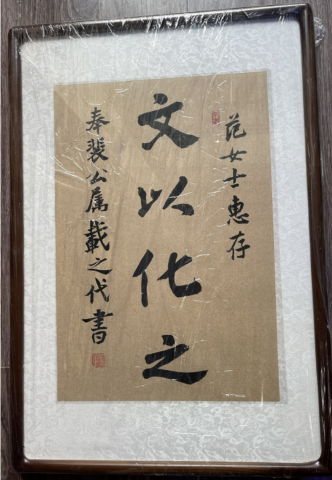 范女士惠存
文以化之
奉裴公属载之代書